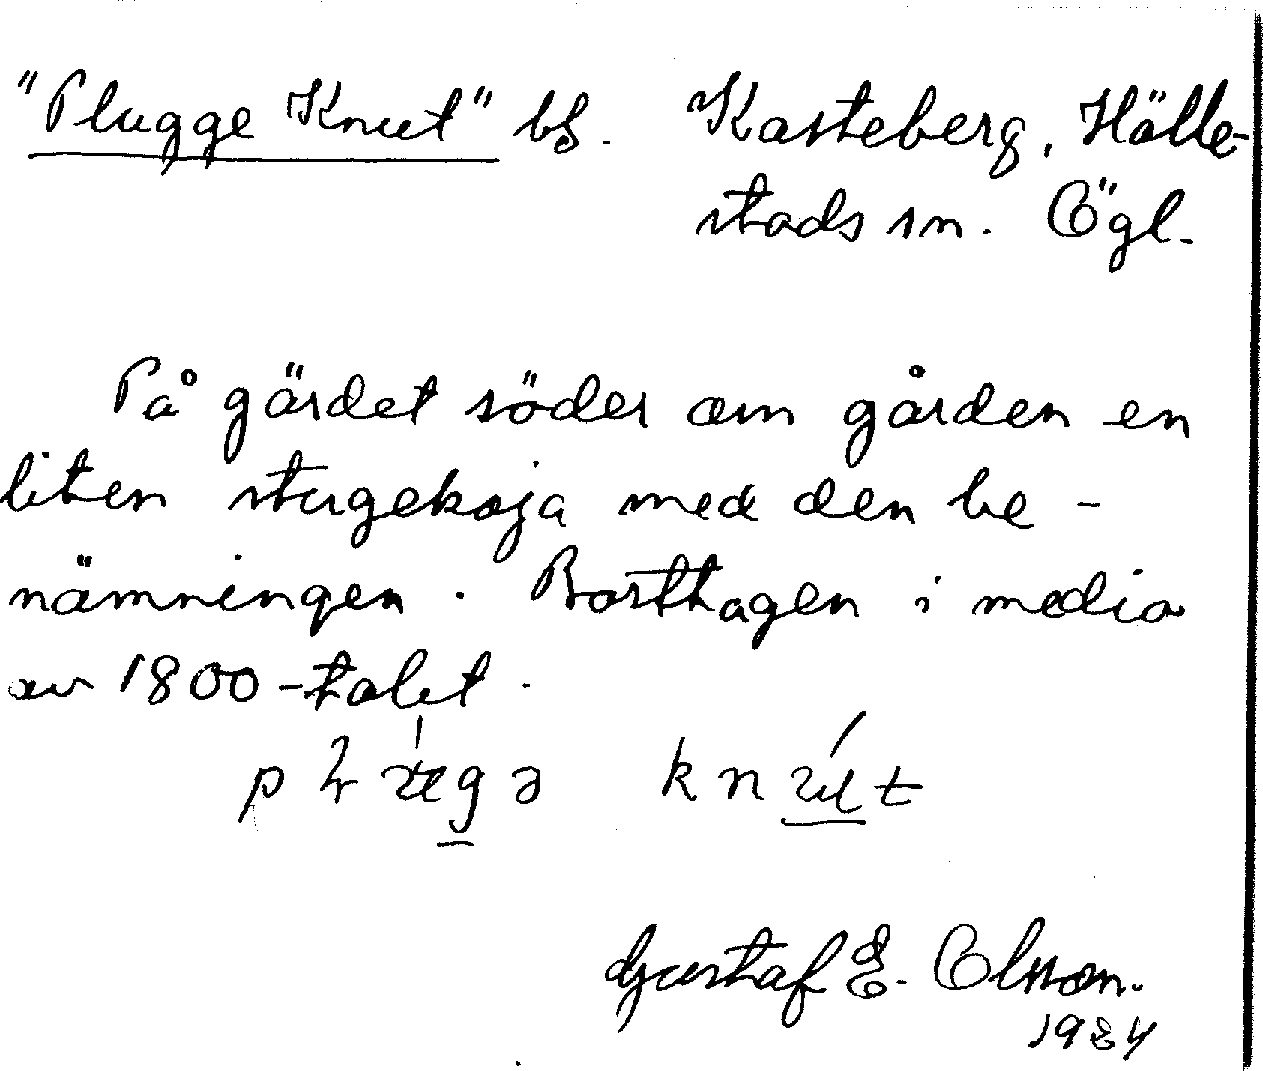 "Plugge Knut" bs. Kasteberg, Hälle-
stads sn. Ögl.
På gärdet söder om gården en
liten stugekoja med den be-
nämningen. Borttagen i medio
av 1800-talet.
knut
Gustaf E. Olsson.
1934